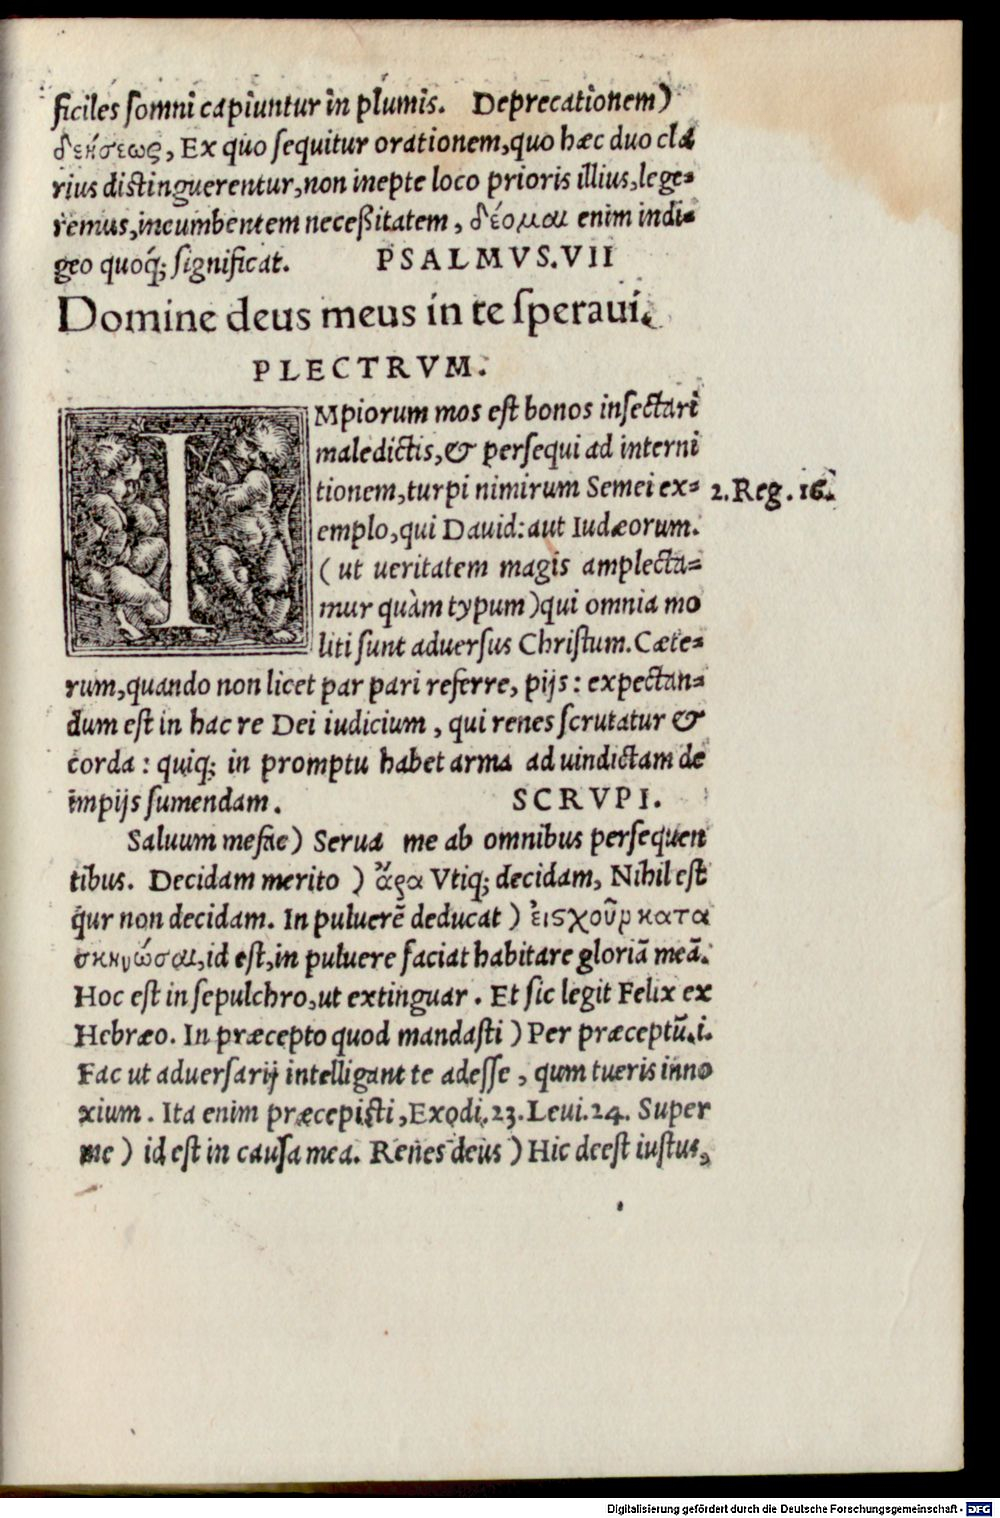 ficiles somni capiuntur in plumis. Deprecationem)
δεήσεως, Ex quo sequitur orationem, quo hæc duo cla
rius distinguerentur, non inepte loco prioris illius, lege-
remus, incumbentem neceßitatem, δέομαι enim indi-
geo quoq; significat. PSALMVS. VII
Domine deus meus in te speraui.
PLECTRVM.
IMpiorum mos est bonos insectari
maledictis, & persequi ad interni
tionem, turpi nimirum Semei ex-
2. Reg. 16.
emplo, qui Dauid: aut Iudæorum.
(ut ueritatem magis amplecta-
mur quàm typum) qui omnia mo
liti sunt aduersus Christum. Cæte-
rum, quando non licet par pari referre, pijs: expectan-
dum est in hac re Dei iudicium, qui renes scrutatur &
corda: quiq; in promptu habet arma ad uindictam de
impijs sumendam. SCRVPI.
Saluum me fac) Serua me ab omnibus persequen
tibus. Decidam merito) ἄρα Vtiq; decidam, Nihil est
qur non decidam. In puluerē deducat) ἐις χοῦν κατα
σκηνώσαι, id est, in puluere faciat habitare gloriā meā.
Hoc est in sepulchro, ut extinguar. Et sic legit Felix ex
Hebræo. In præcepto quod mandasti) Per præceptū. i.
Fac ut aduersarij intelligant te adesse, qum tueris inno
xium. Ita enim præcepisti, Exodi. 23. Leui. 24. Super
me) id est in causa mea. Renes deus) Hic deest iustus,
Digitalisierung gefördert durch die Deutsche Forschungsgemeinschaft - DFG